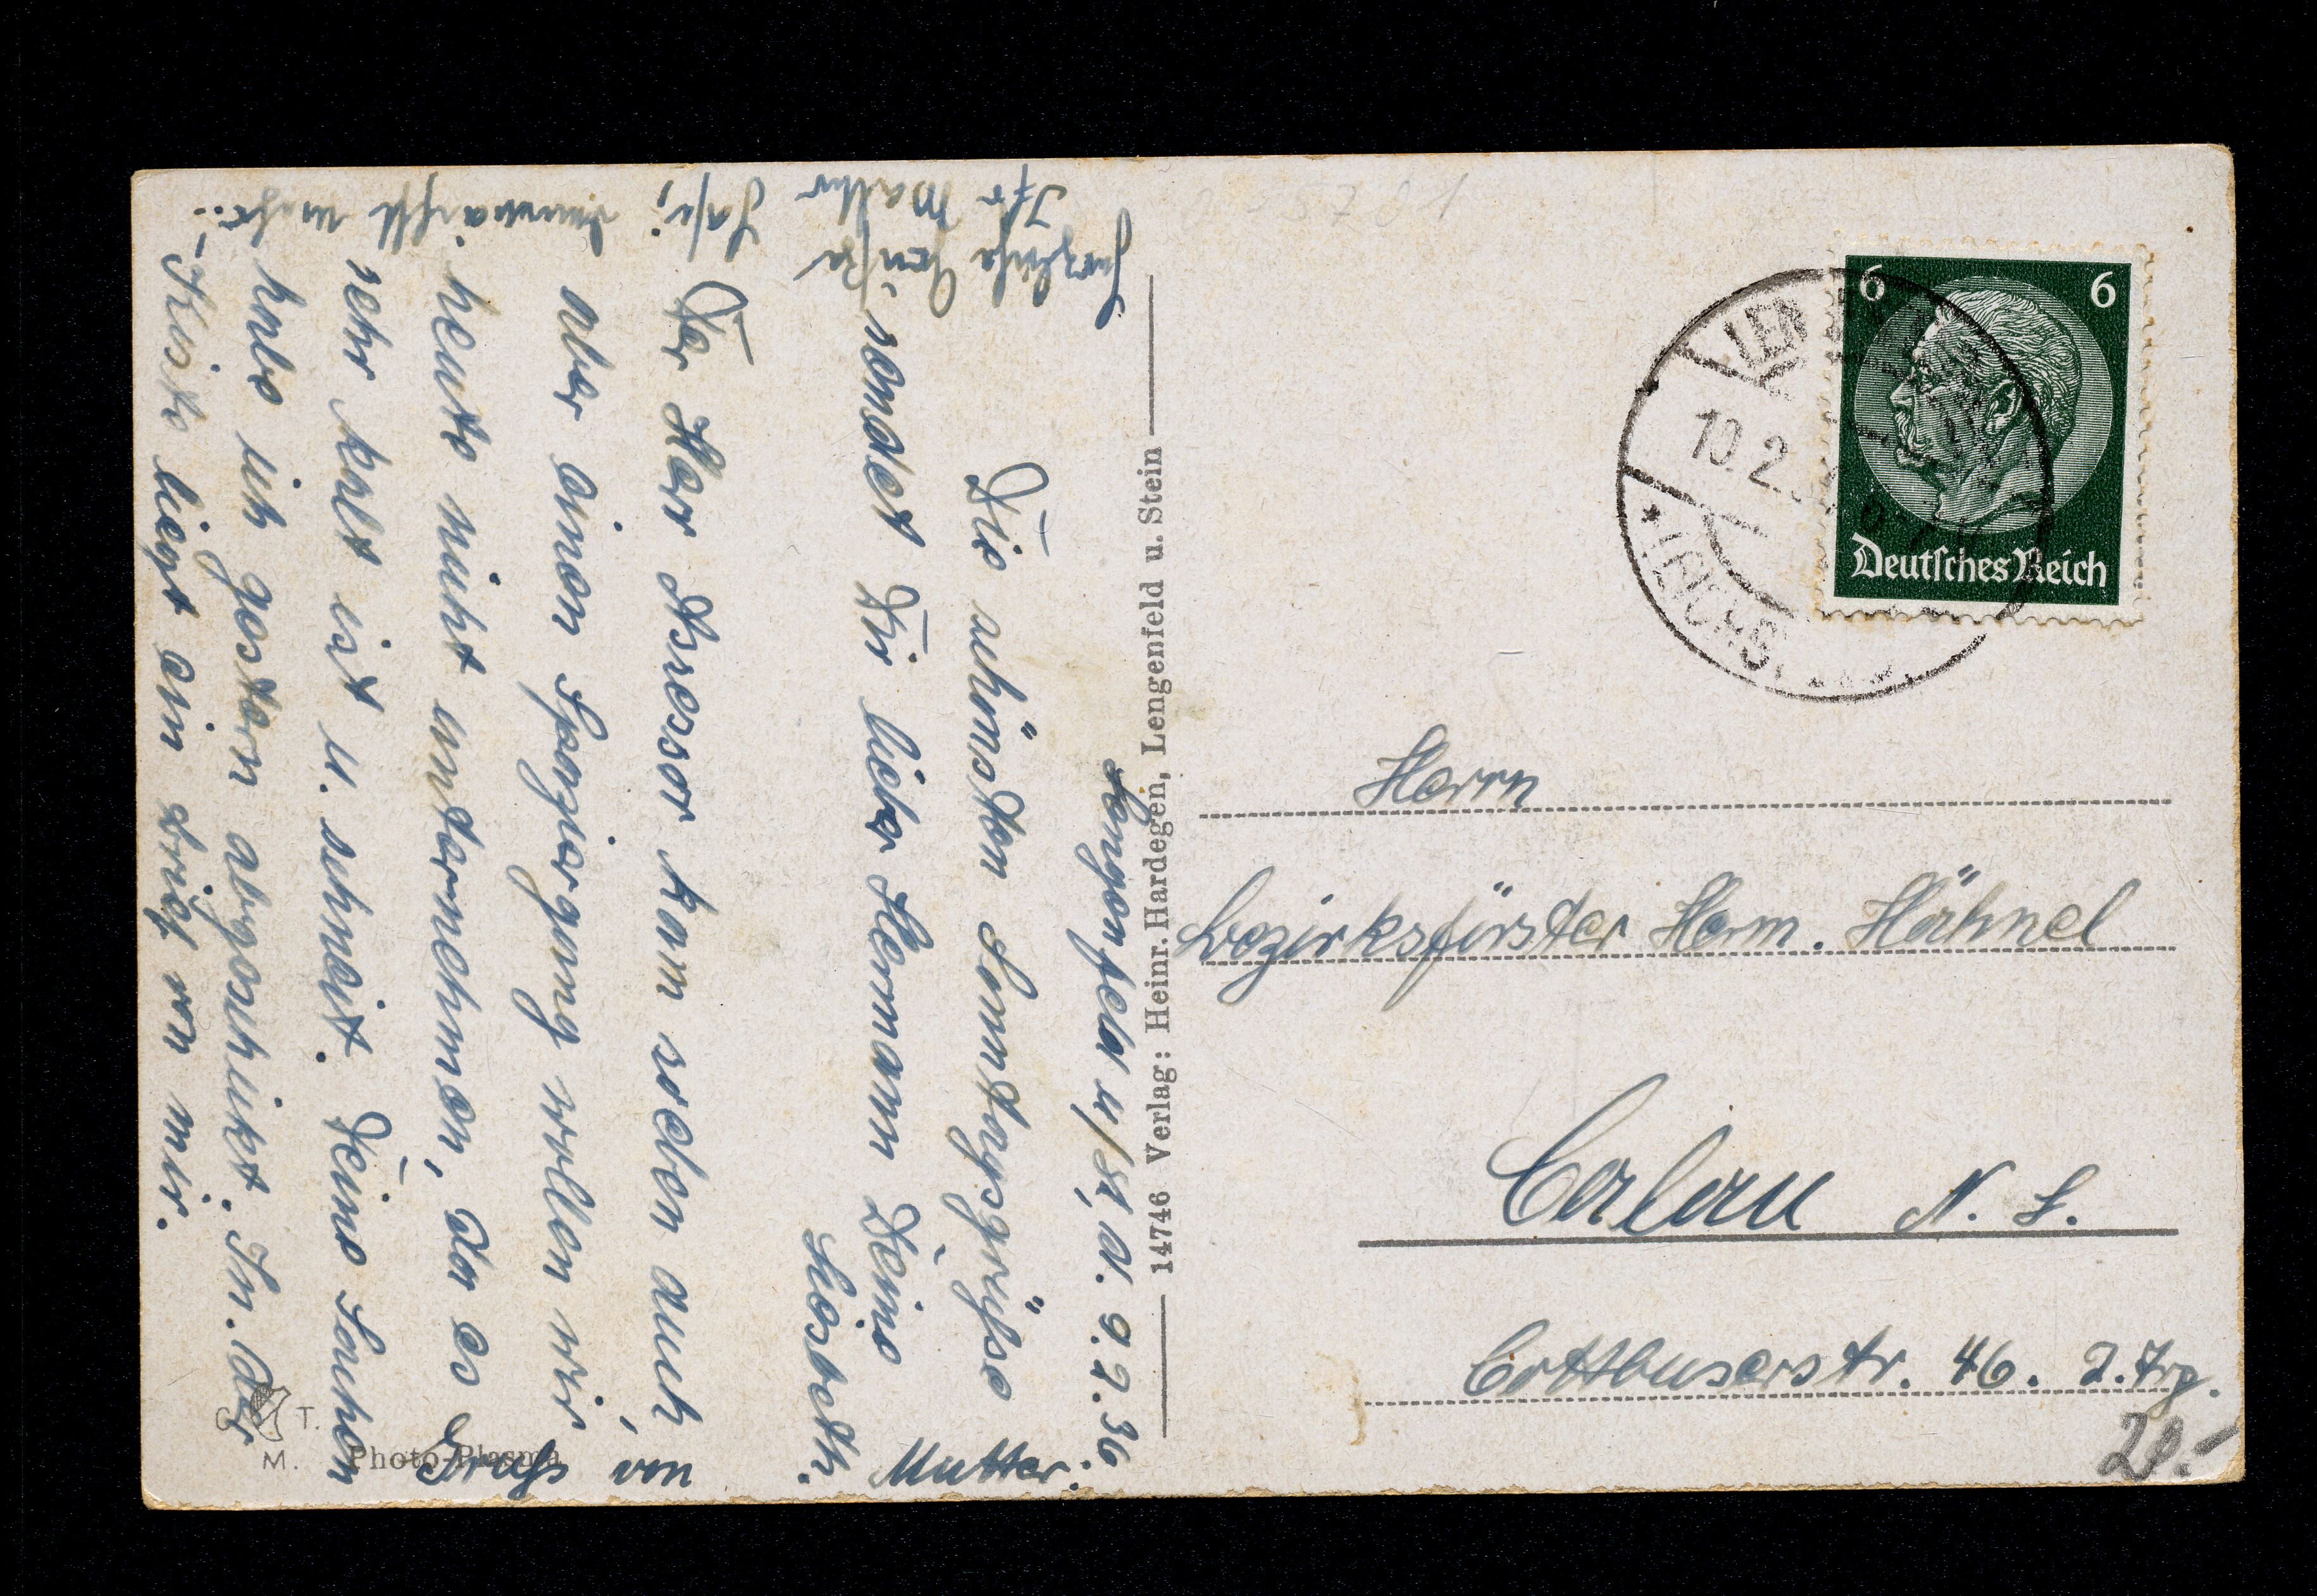 Lengenfeld u/St, d. 9.2.36.
Die schönsten Sonntagsgrüße
sendet Dir lieber Hermann Deine
Mutter.
Liesbeth.
Der Herr Assessor kam soeben auch,
aber einen Spaziergang wollen wir
heute nicht unternehmen, da es
sehr kalt ist u. schneit. Deine Sachen
habe ich gestern abgeschickt. In der
Kiste liegt ein Brief von mir.
Herzliche Grüße
Ihr
14746 Verlag: Heinr. Hardegen, Lengenfeld u. Stein
C T.
M.
Photo-Plasma
6 6
Deutsches Reich
10.2.
Herrn
Bezirksförster Herm. Hähnel
Calau N. L.
Cottbuserstr. 46. 2. Trg.
20.-